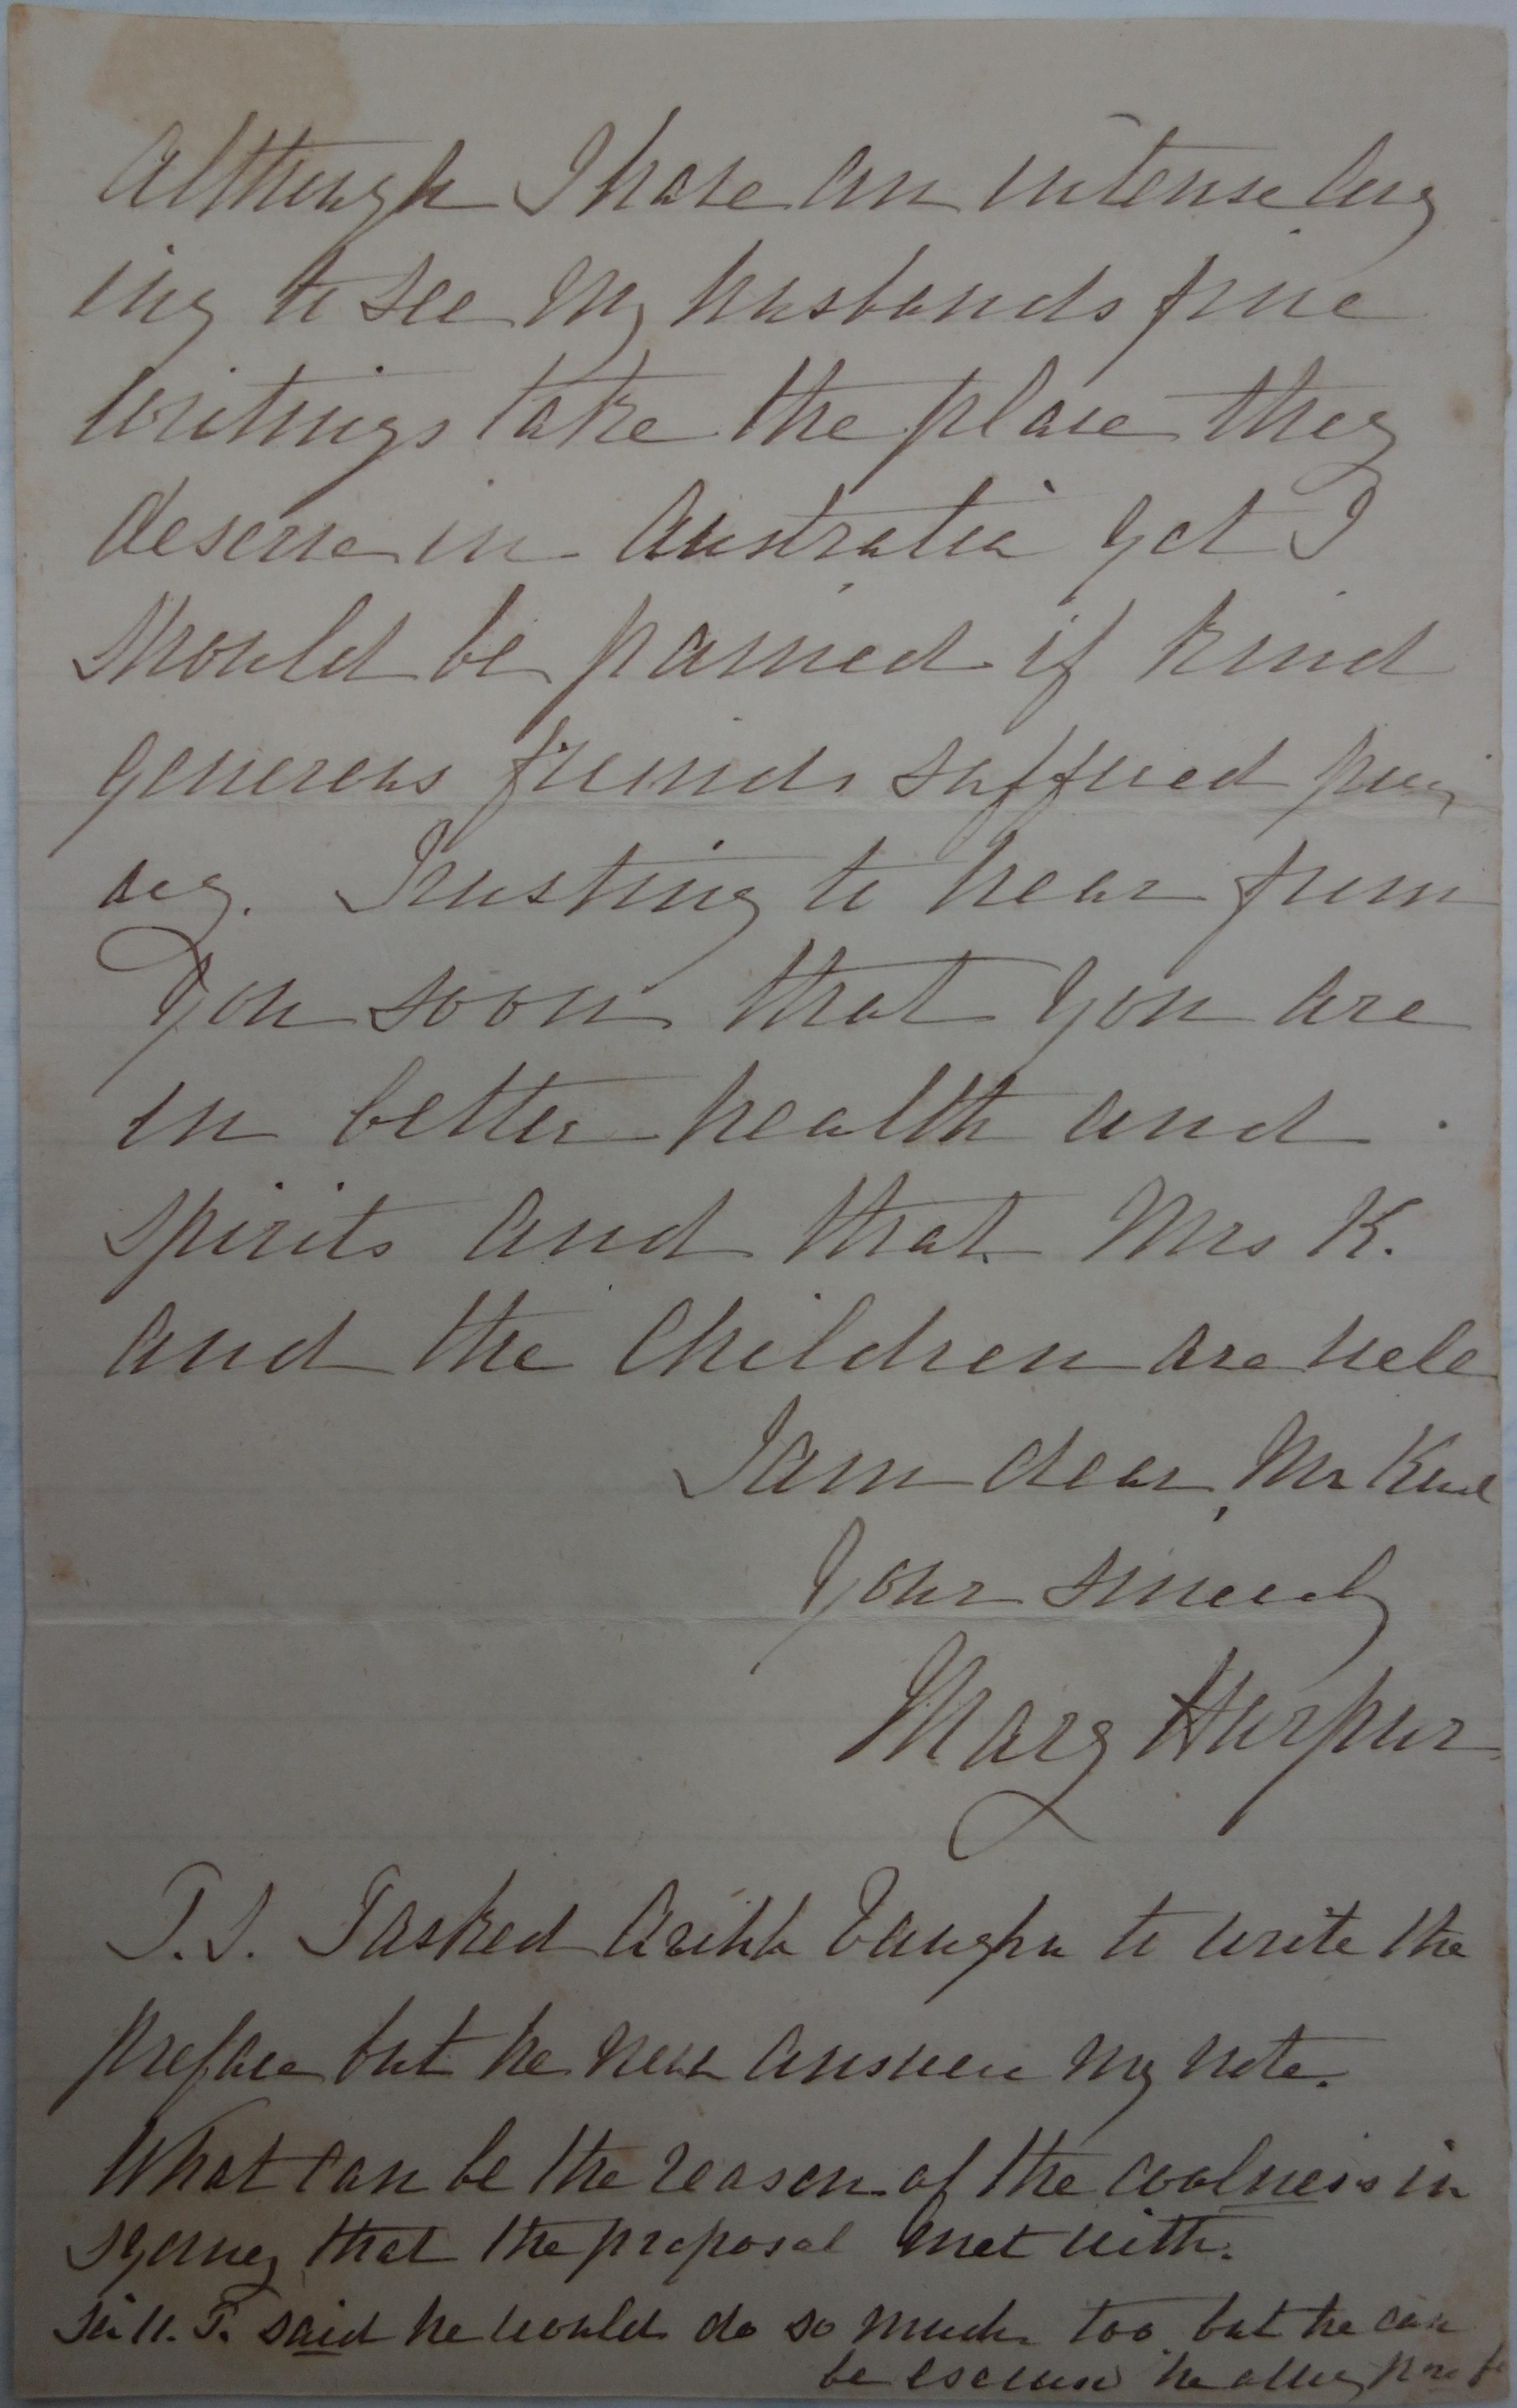 Although I have an intense long
ing to see my husbands fine
writings take the place they
deserve in Australia yet I
should be pained if kind
generous friends suffered
Trusting to hear from
you soon that you are
in better health and
spirits and that Mrs K.
and the children are well
I am dear Mr Kend
Your sincerely
Mary Harpur
P.S. I asked Archb Vaughn to write the
preface but he never answered my note.
What can be the reason of the coolness in
Sydney that the proposal met with.
said he would do so much too but he can
be excused he